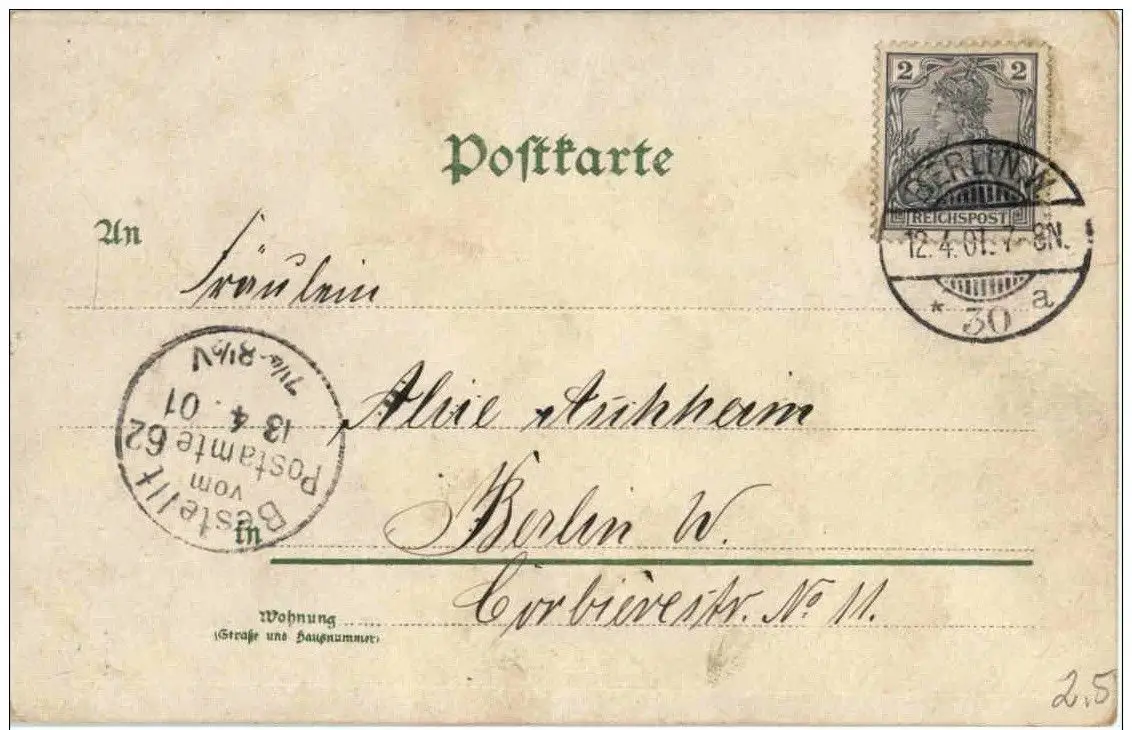 2 2
REICHSPOST
BERLIN.W.
12.4.01. 7-8N.
* 30 a
Postkarte
An
Fräulein
Alice
Berlin W.
in
Corbièrestr. No 11.
Wohnung
(Straße und Hausnummer)
Bestellt
vom
Postamte 62
13 4. 01
7¼-8½V
2.5